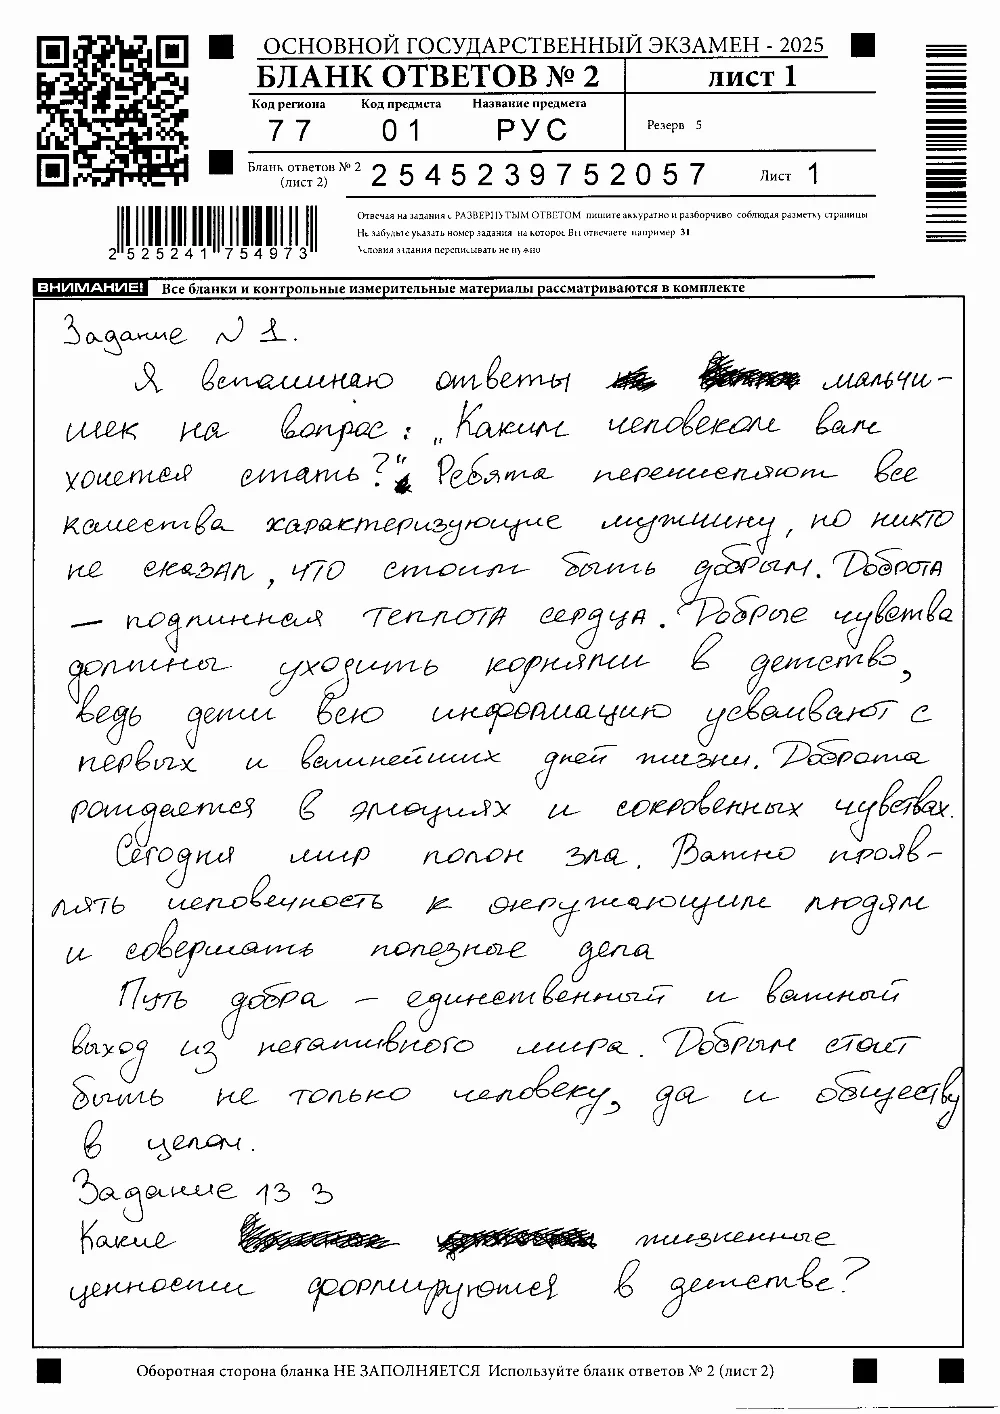 ОСНОВНОЙ ГОСУДАРСТВЕННЫЙ ЭКЗАМЕН - 2025
БЛАНК ОТВЕТОВ № 2 лист 1
Код региона Код предмета Название предмета
77 01 РУС Резерв 5
Бланк ответов № 2 (лист 2) 2545239752057 Лист 1
Отвечая на задания с РАЗВЕРНУТЫМ ОТВЕТОМ пишите аккуратно и разборчиво соблюдая разметку страницы
Не забудьте указать номер задания на которое Вы отвечаете например 31
Условия задания переписывать не нужно
2525241754973
ВНИМАНИЕ! Все бланки и контрольные измерительные материалы рассматриваются в комплекте
Задание N 1.
Я вспоминаю ответы мальчи-
шек на вопрос: „Каким человеком вам
хочется стать?“ Ребята перечисляют все
качества характеризующие мужчину, но никто
не сказал, что стоит быть добрым. Доброта
— подлинная теплота сердца. Добрые чувства
должны уходить корнями в детство,
ведь дети всю информацию усваивают с
первых и важнейших дней жизни. Доброта
рождается в эмоциях и сокровенных чувствах.
Сегодня мир полон зла. Важно прояв-
лять человечность к окружающим людям
и совершать полезные дела
Путь добра — единственный и важный
выход из негативного мира. Добрым стоит
быть не только человеку, да и обществу
в целом.
Задание 13 3
Какие жизненные
ценности формируются в детстве?
Оборотная сторона бланка НЕ ЗАПОЛНЯЕТСЯ Используйте бланк ответов № 2 (лист 2)